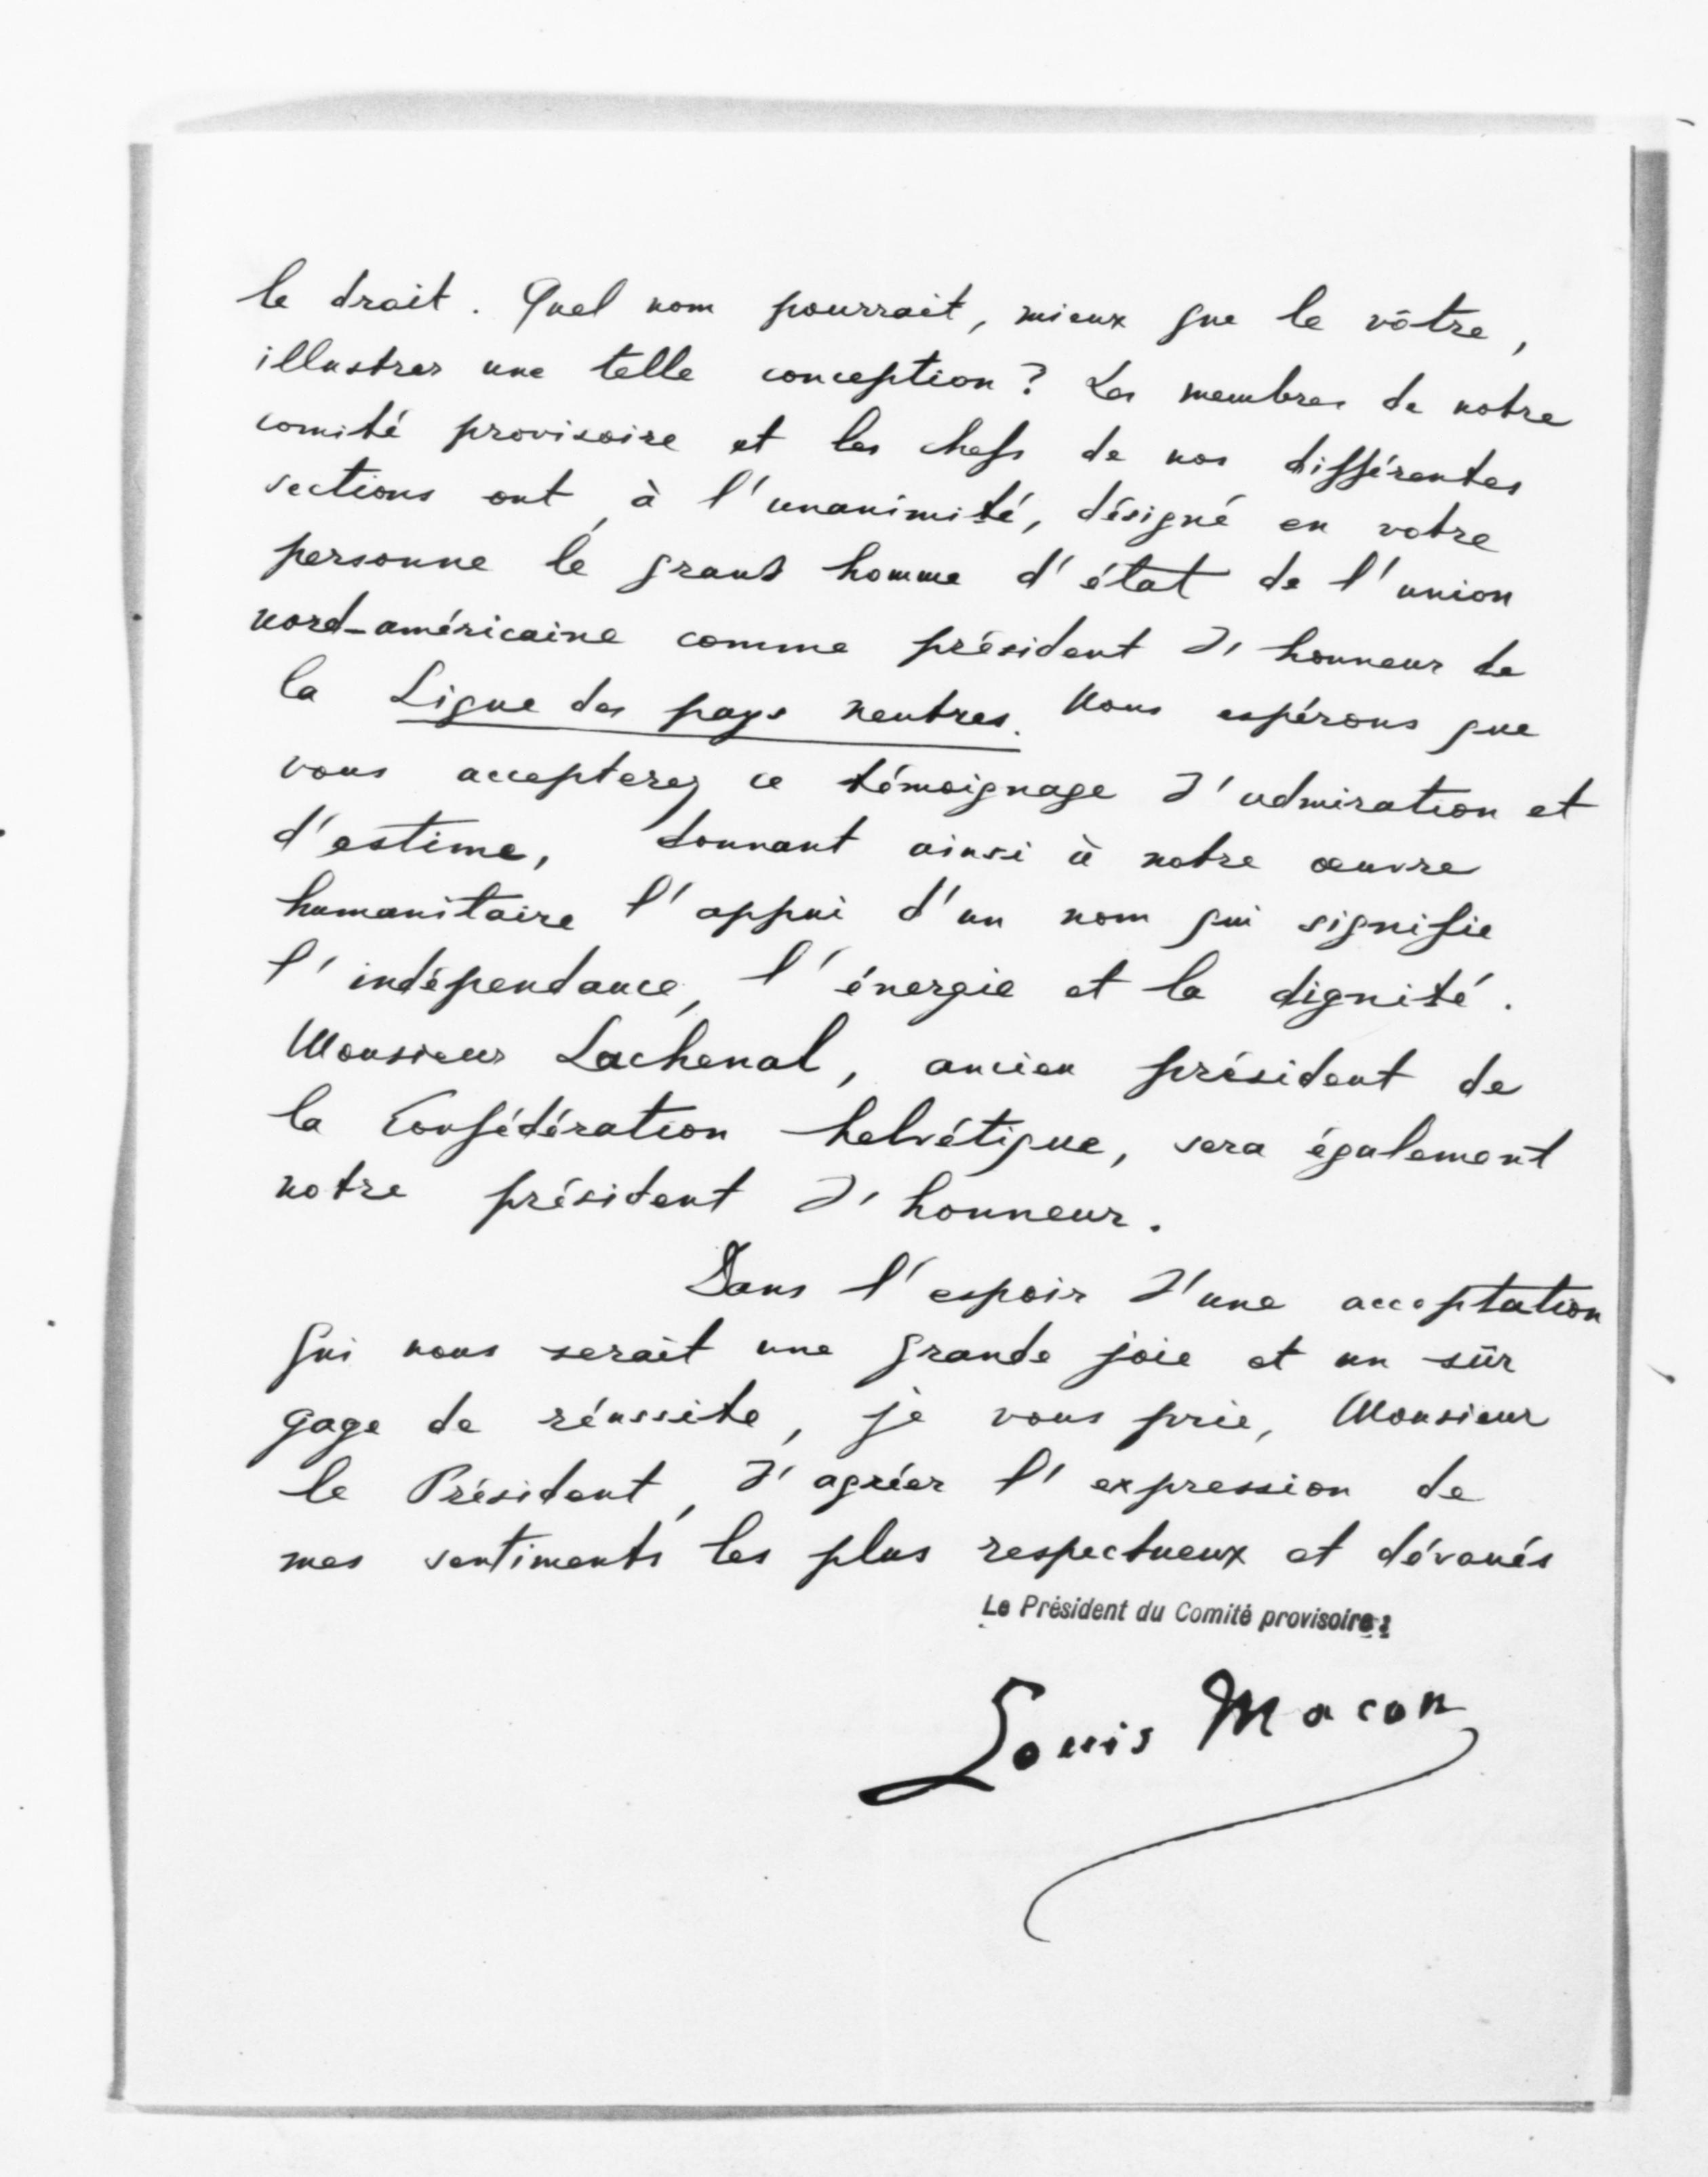 le droit. Quel nom pourrait, mieux que le vôtre,
illustrer une telle conception ? Les membres de notre
comité provisoire et les chefs de nos différentes
sections ont, à l'unanimité, désigné en votre
personne le grand homme d'état de l'union
nord-américaine comme président d'honneur de
la Ligue des pays neutres. Nous espérons que
vous accepterez ce témoignage d'admiration et
d'estime, donnant ainsi à notre œuvre
humanitaire l'appui d'un nom qui signifie
l'indépendance, l'énergie et la dignité.
Monsieur Lachenal, ancien président de
la Confédération helvétique, sera également
notre président d'honneur.
Dans l'espoir d'une acceptation
qui nous serait une grande joie et un sûr
gage de réussite, je vous prie, Monsieur
le Président, d'agréer l'expression de
mes sentiments les plus respectueux et dévoués
Le Président du Comité provisoire :
Louis Macon